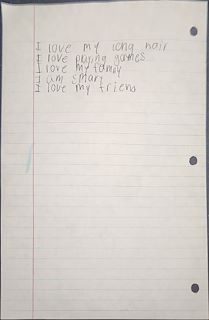 I love my long hair
I love playing games
I love my family
I am smart
I love my friend